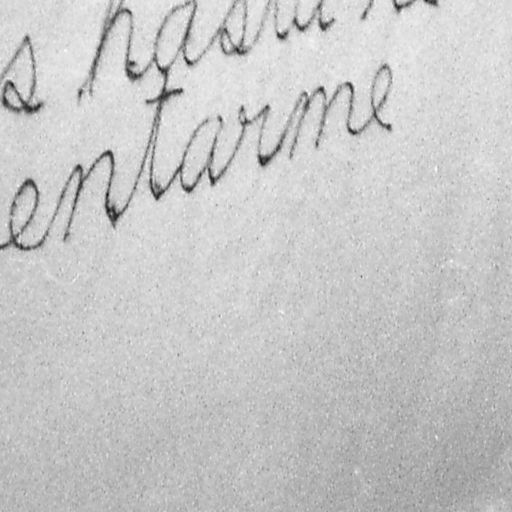 s hasta
entarme